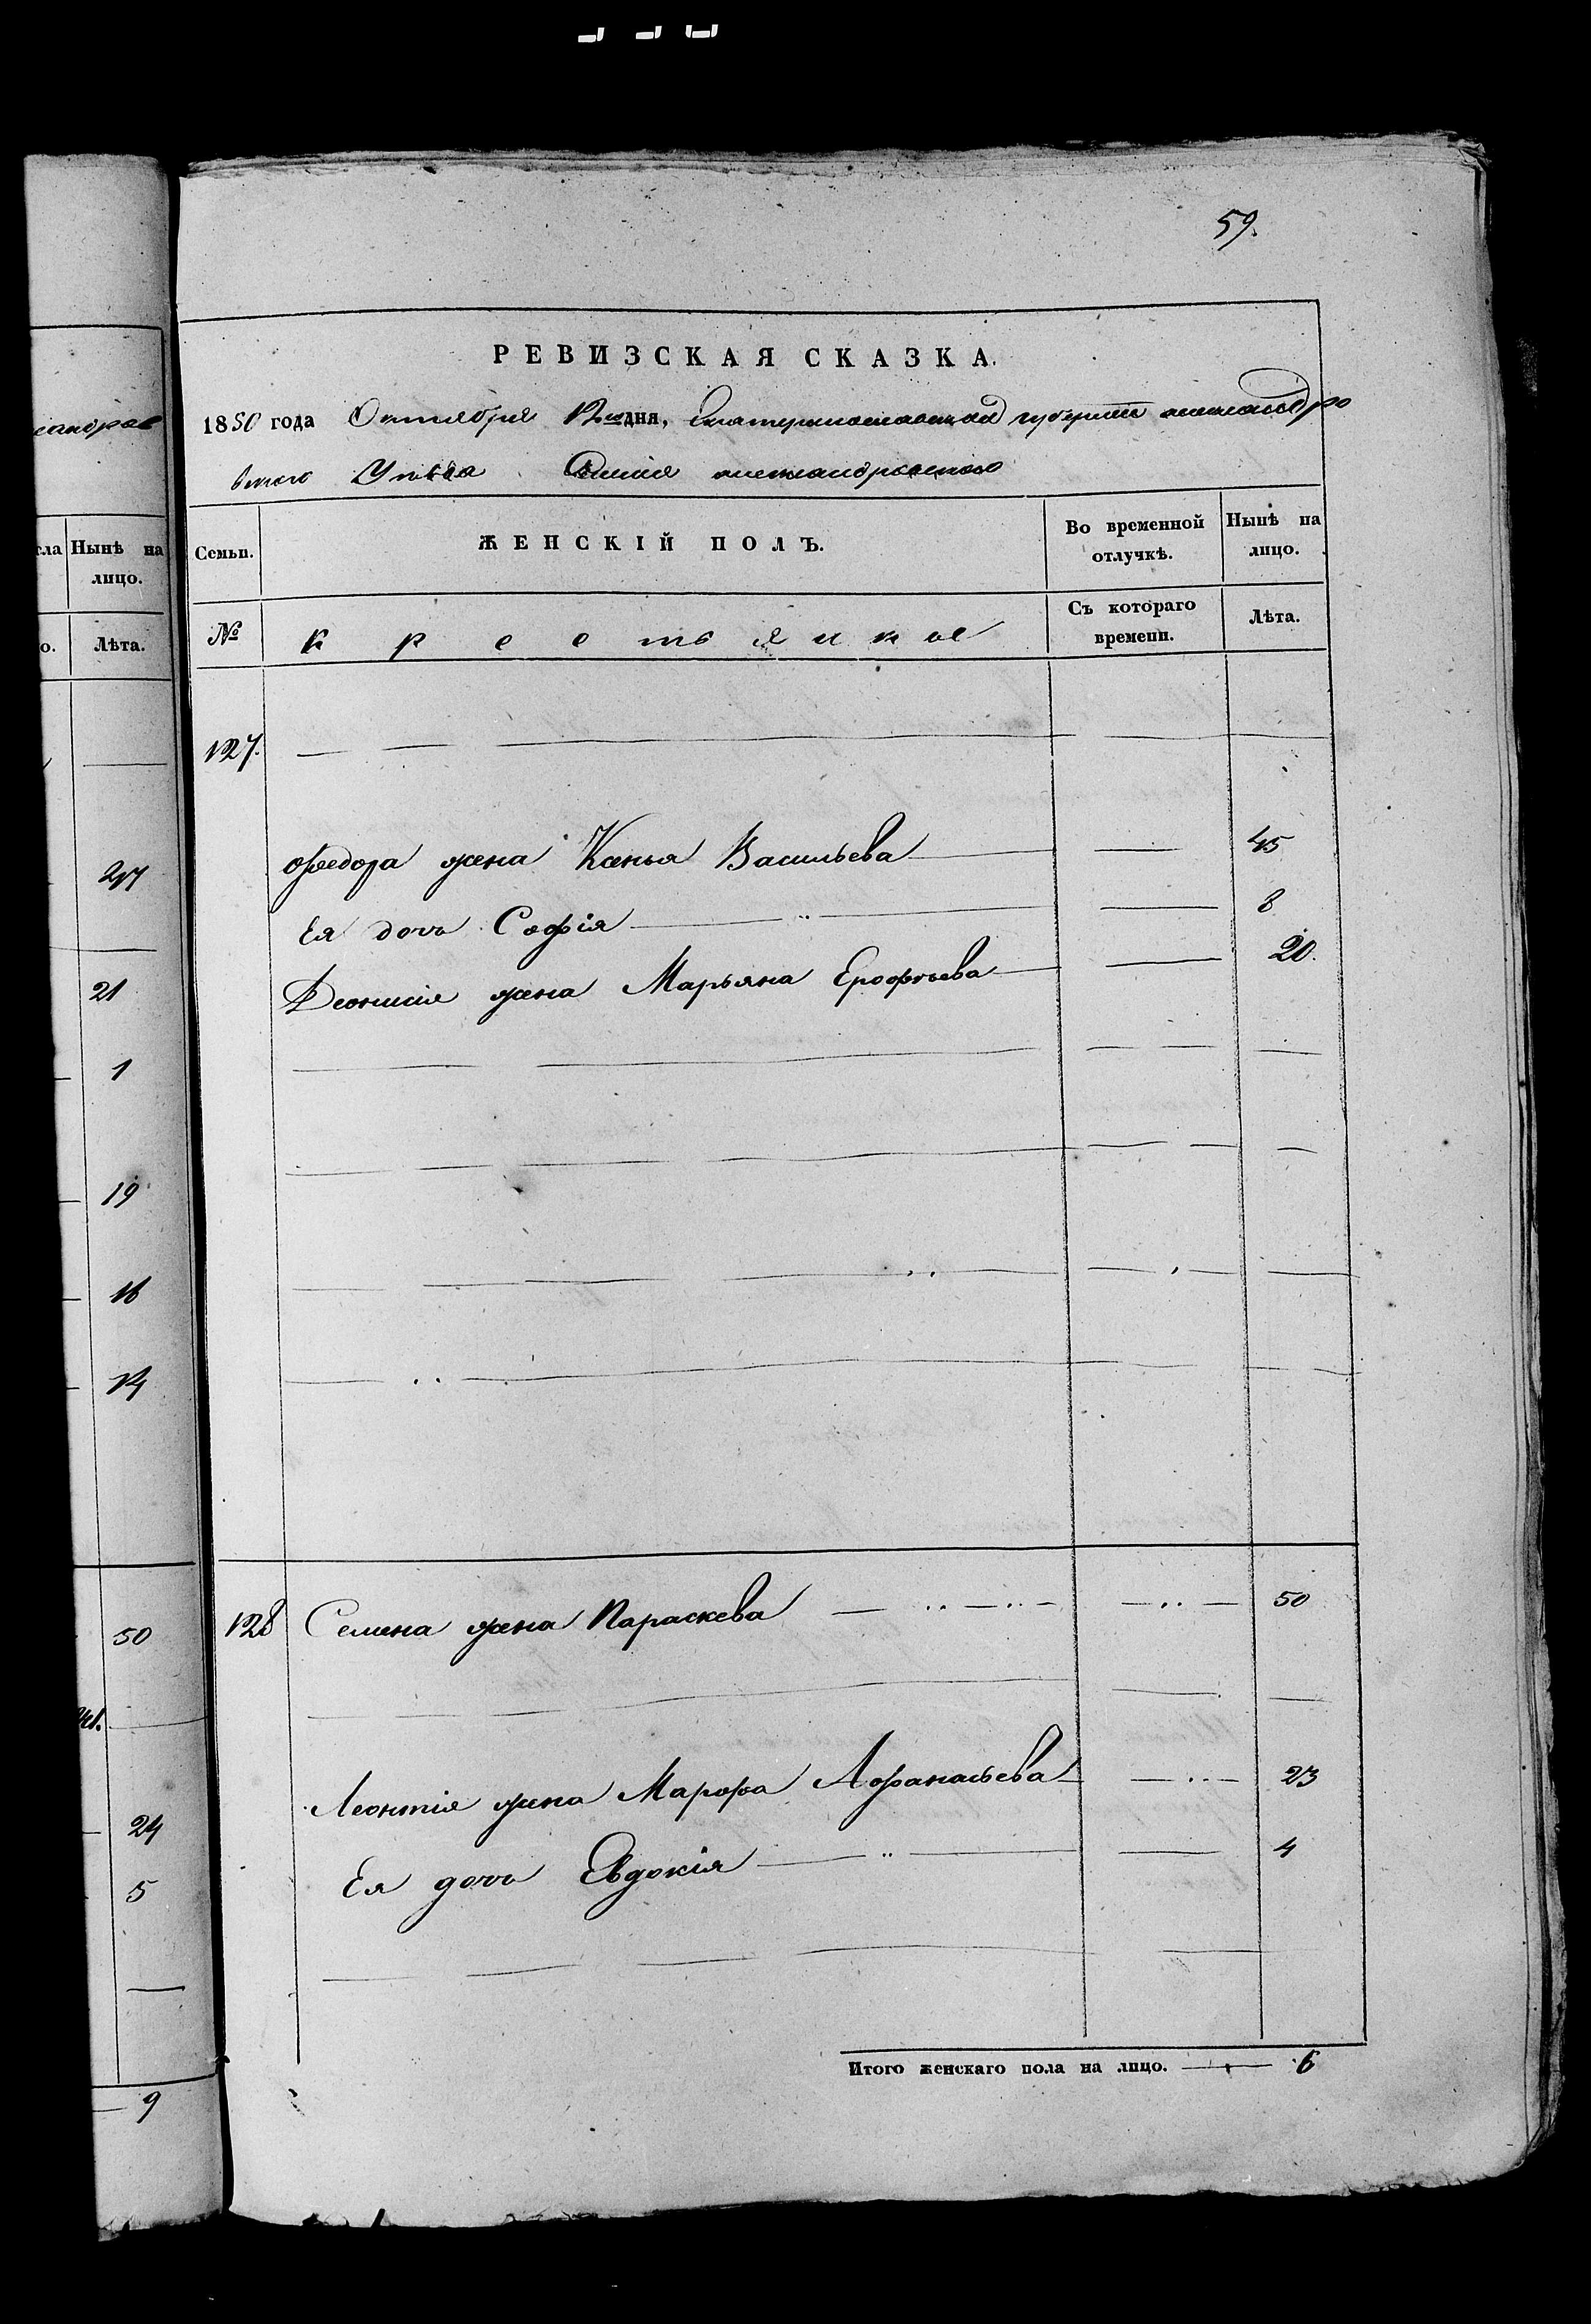 59.
РЕВИЗСКАЯ СКАЗКА.
1850 года Октября 12го дня, Екатеринославской губернии александро
вскаго Уезда Селенія александровскаго
Семьи.
ЖЕНСКІЙ ПОЛЪ.
Во временной отлучкѣ.
Нынѣ на лицо.
№
крестьянкое
Съ котораго времени.
Лѣта.
127.
Федора жена Ксенья Васильева 45
Ея дочь Софія 8
Деонисія жена Марьяна Ерофѣева 20.
128 Семена жена Параскева 50
Леонтія жена Марфа Афанасьева 23
Ея дочь Евдокія 4
Итого женскаго пола на лицо. 6
Нынѣ на лицо.
Лѣта.
21
1
19
16
14
50
24
5
9